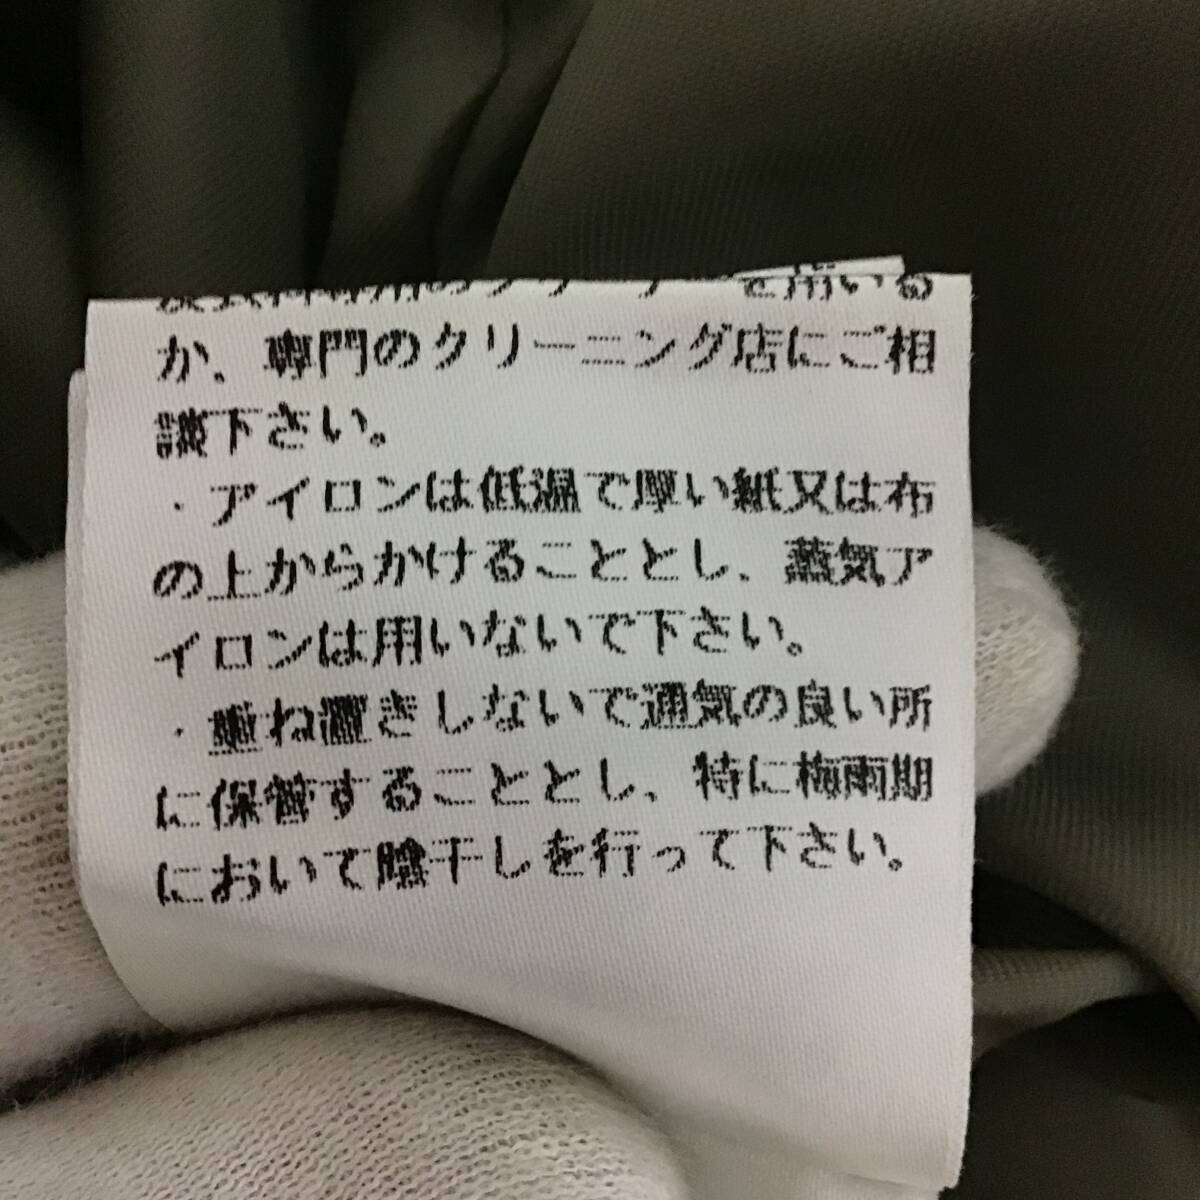 を用いる
か、専門のクリーニング店にご相
談下さい。
・アイロンは低温で厚い紙又は布
の上からかけることとし、蒸気ア
イロンは用いないで下さい。
・重ね置きしないで通気の良い所
に保管することとし、特に梅雨期
において陰干しを行って下さい。